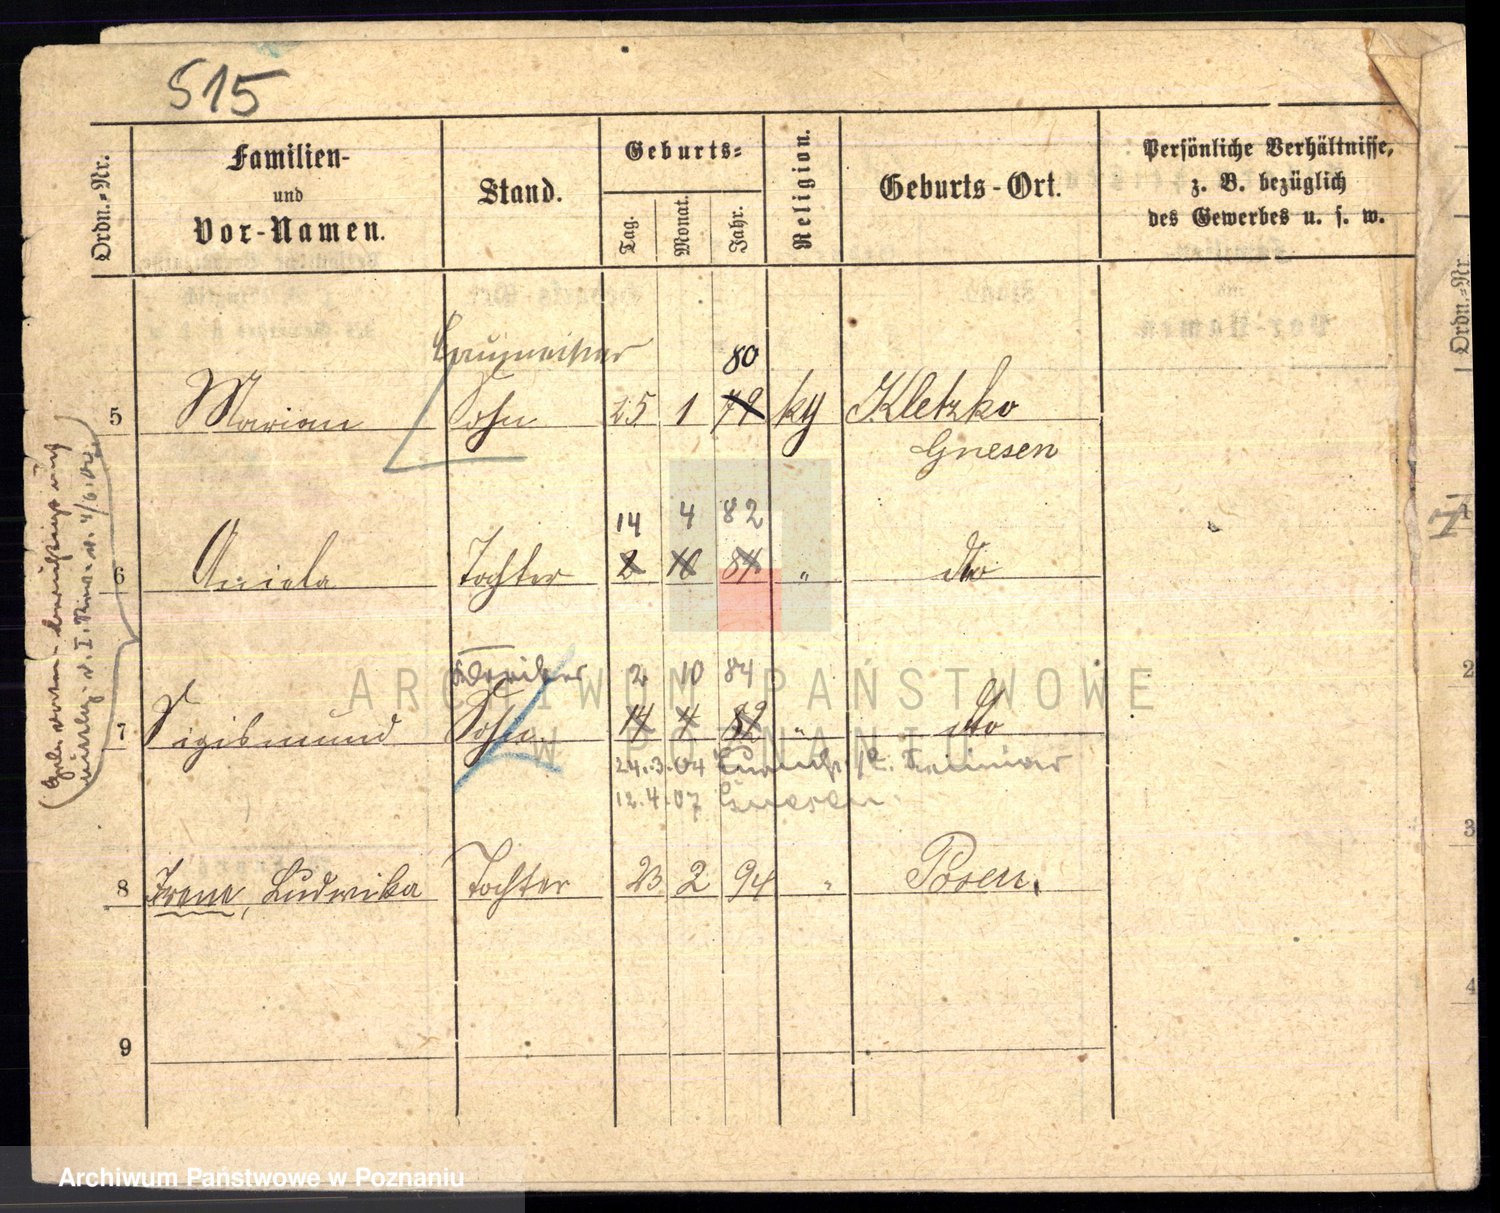 515
Ordn.-Nr.
Familien-
und
Vor-Namen.
Stand.
Geburts-
Tag.
Monat.
Jahr.
Religion.
Geburts-Ort.
Persönliche Verhältnisse,
z. B. bezüglich
des Gewerbes u. s. w.
Ordn.-Nr.
80
5 Marian Sohn 25 1 79 kth Kletzko
Gnesen
14 4 82
6 Aniela Tochter 2 10 84 " dto
2 10 84
7 Sigismund Sohn 14 4 82 " dto
24.3.04
12.4.07 Gnesen.
8 Irene, Ludwika Tochter 23 2 94 " Posen.
9
1
2
3
4
ARCHIWUM PAŃSTWOWE
W POZNANIU
Archiwum Państwowe w Poznaniu